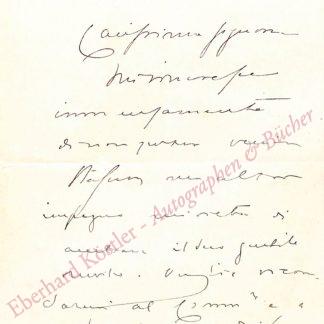 Carissima Signora
Mi rincresce
immensamente
di non poter venire
un altro
impegno mi vieta di
accettare il suo gentile
invito. Voglia ricor
darmi al Comm.re e a
Eberhard Köstler - Autographen & Bücher